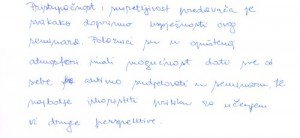 Pristupačnost i susretljivost predavača je
svakako doprinijelo uspješnosti ovog
seminara. Polaznici su u opuštenoj
atmosferi imali mogućnost dati sve od
sebe aktivno sudjelovati na seminaru te
najbolje iskoristiti priliku za učenjem
iz druge perspektive.